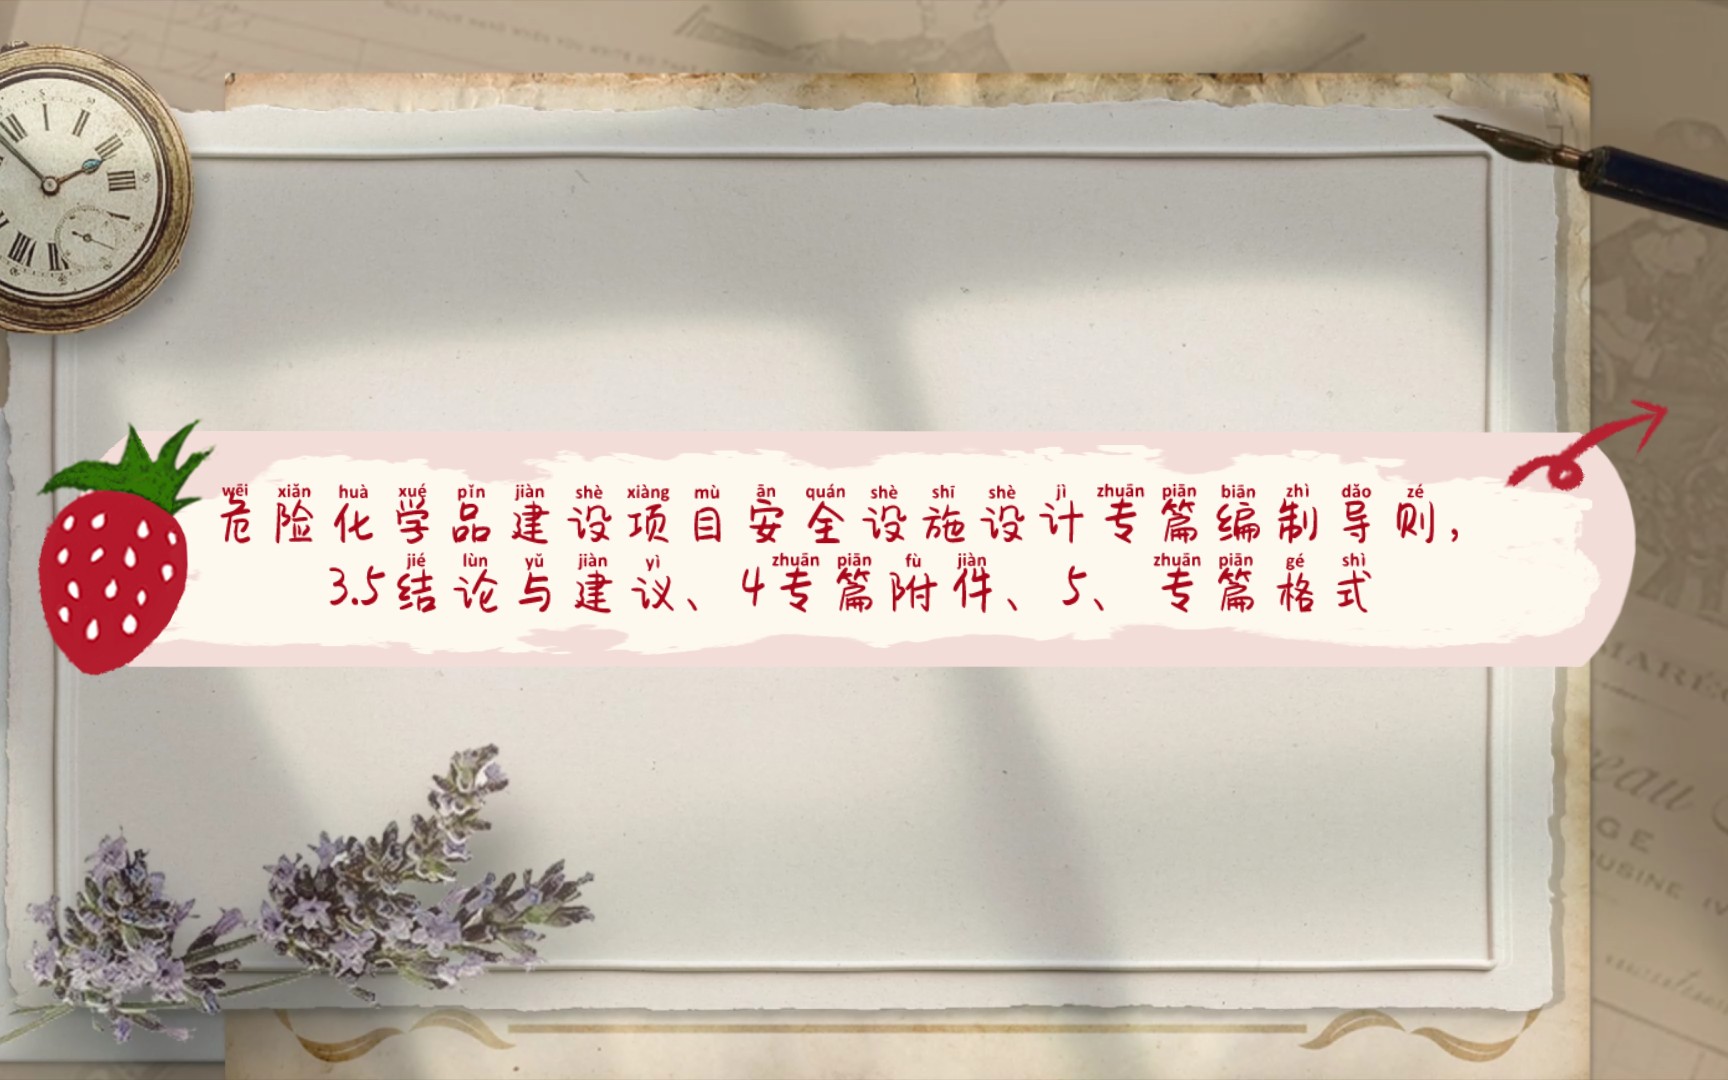 wēi xiǎn huà xué pǐn jiàn shè xiàng mù ān quán shè shī shè jì zhuān piān biān zhì dǎo zé
危险化学品建设项目安全设施设计专篇编制导则，
jié lùn yǔ jiàn yì zhuān piān fù jiàn zhuān piān gé shì
3.5结论与建议、4专篇附件、5、专篇格式